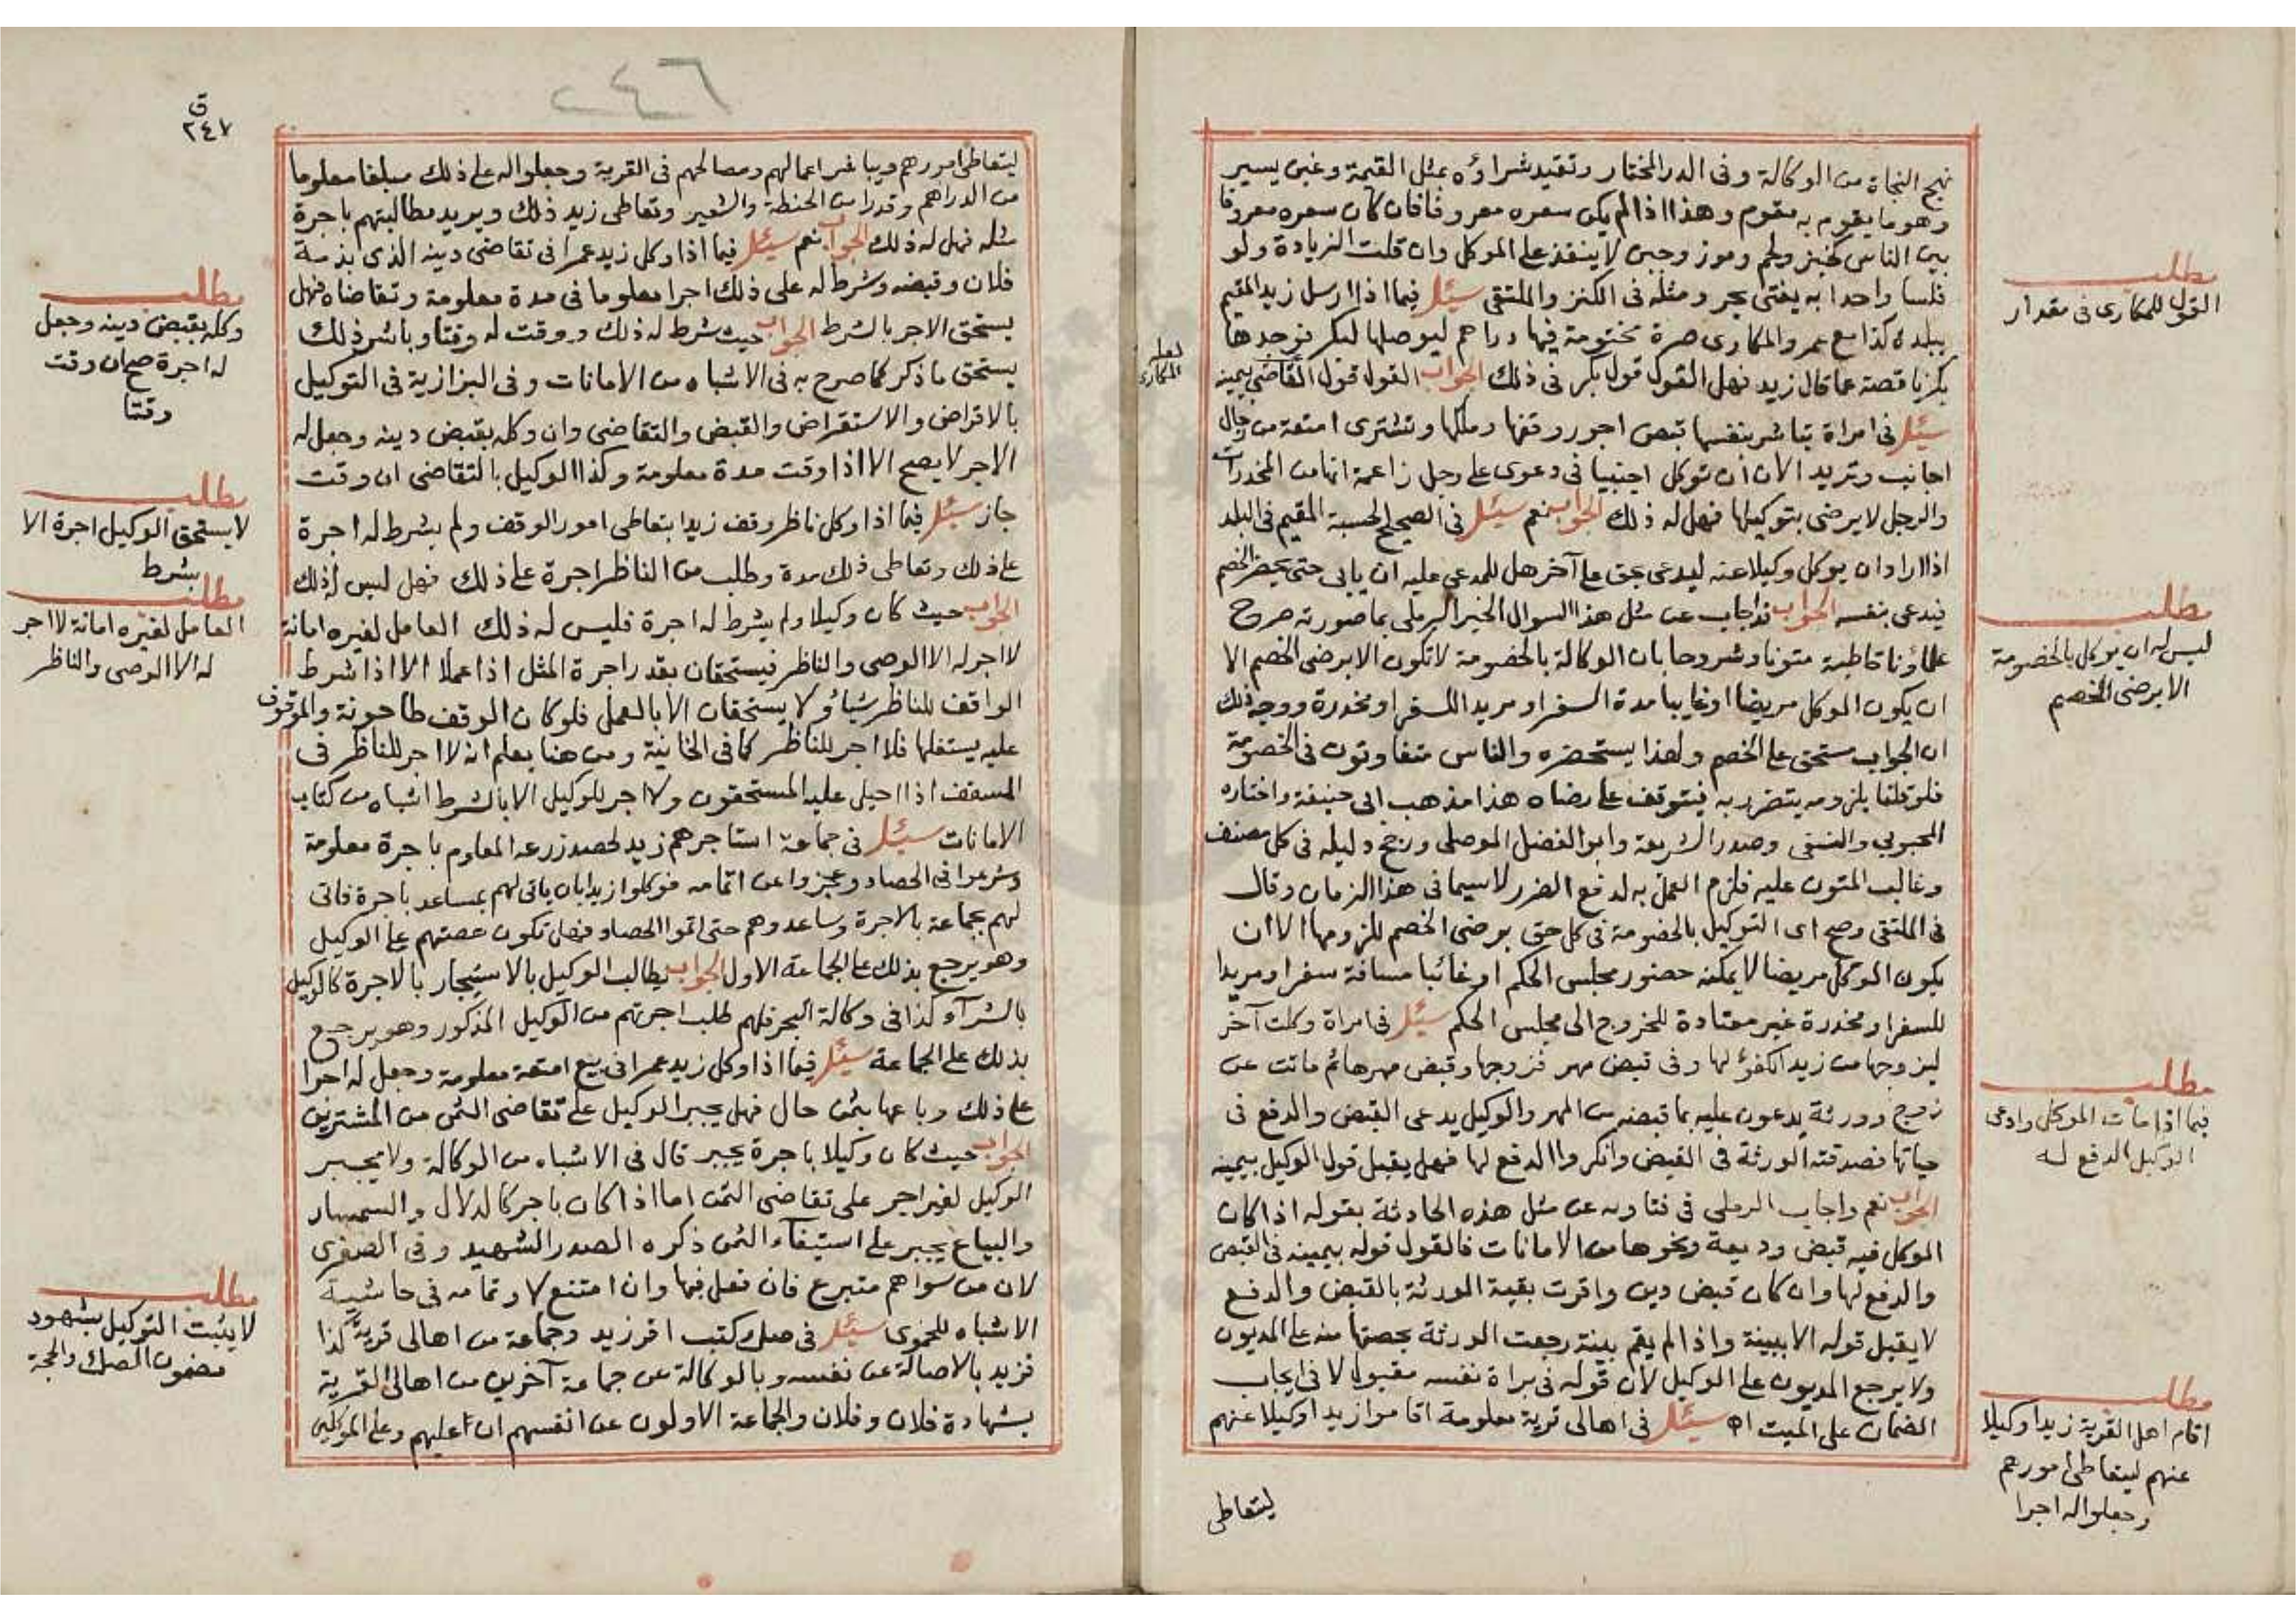 نهج النجاة من الوكالة وفى الدر المختار وتقيد شراؤه بمثل القيمة وغبن يسير
وهو ما يقوم به مقوم وهذا اذا لم يكن سعره معروفا فان كان سعره معروفا
بين الناس كخبز ولحم وموز وجبن لا ينفذ على الموكل وان قلت الزيادة ولو
فلسا واحدا به يفتى بحر ومثله فى الكنز والملتقى سئل فيما اذا ارسل زيد المقيم
ببلدة كذا مع عمرو المكارى صرة مختومة فيها دراهم ليوصلها لبكر فوجدها
بكر ناقصة عما قال زيد فهل القول قول بكر فى ذلك الجواب القول قول القابض بيمينه
سئل فى امراة تباشر بنفسها قبض اجور وقفها وملكها وتشترى امتعة من رجال
اجانب وتريد الان ان توكل اجنبيا فى دعوى على رجل زاعمة انها من المخدرات
والرجل لا يرضى بتوكيلها فهل له ذلك الجواب نعم سئل فى الصحيح الجسم المقيم فى البلد
اذا اراد ان يوكل وكيلا عنه ليدعى بحق على آخر هل للمدعى عليه ان يابى حتى يحضر الخصم
فيدعى بنفسه الجواب قد اجاب عن مثل هذا السوال الخير الرملى بما صورته صرح
علماؤنا قاطبة متونا وشروحا بان الوكالة بالخصومة لا تكون الا برضى الخصم الا
ان يكون الموكل مريضا او غايبا مدة السفر او مريدا للسفر او مخدرة ووجه ذلك
ان الجواب مستحق على الخصم ولهذا يستحضره والناس متفاوتون فى الخصومة
فلو قلنا بلزومه يتضرر به فيتوقف على رضاه هذا مذهب ابى حنيفة واختاره
المحبوبي والنسفى وصدر الشريعة وابو الفضل الموصلى ورجح دليله فى كل مصنف
وغالب المتون عليه فلزم العمل به لدفع الضرر لا سيما فى هذا الزمان وقال
فى الملتقى وصح اى التوكيل بالخصومة فى كل حق برضى الخصم للزومها الا ان
يكون الموكل مريضا لا يمكنه حضور مجلس الحكم او غائبا مسافة سفر او مريدا
للسفر او مخدرة غير معتادة للخروج الى مجلس الحكم سئل فى امراة وكلت آخر
ليزوجها من زيد الكفؤ لها وفى قبض مهر فزوجها وقبض مهرها ثم ماتت عن
زوج وورثة يدعون عليه بما قبضه من المهر والوكيل يدعى القبض والدفع فى
حياتها فصدقته الورثة فى القبض وانكروا الدفع لها فهل يقبل قول الوكيل بيمينه
الجواب نعم واجاب الرملى فى فتاويه عن مثل هذه الحادثة بقوله اذا كان
الموكل فيه قبض وديعة ونحوها من الامانات فالقول قوله بيمينه فى القبض
والدفع لها وان كان قبض دين واقرت بقية الورثة بالقبض والدفع
لا يقبل قوله الا ببينة واذا لم يقم بينة رجعت الورثة بحصتها منه على المديون
ولا يرجع المديون على الوكيل لان قوله فى براة نفسه مقبول لا فى ايجاب
الضمان على الميت اه سئل فى اهالى قرية معلومة اقاموا زيدا وكيلا عنهم
ليتعاطى
لعله
المكارى
مطلب
القول للمكارى فى مقدار
مطلب
ليس له ان يوكل بالخصومة
الا برضى الخصم
مطلب
فيما اذا مات الموكل وادعى
الوكيل الدفع له
مطلب
اقام اهل القرية زيدا وكيلا
عنهم ليتعاطى امورهم
وجعلوا له اجرا
٢٤٦
ق
٢٤٧
ليتعاطى امورهم ويباشر اعمالهم ومصالحهم فى القرية وجعلوا له على ذلك مبلغا معلوما
من الدراهم وقدرا من الحنطة والشعير وتعاطى زيد ذلك ويريد مطالبتهم باجرة
مثله فهل له ذلك الجواب نعم سئل فيما اذا وكل زيد عمرا فى تقاضى دينه الذى بذمة
فلان وقبضه وشرط له على ذلك اجرا معلوما فى مدة معلومة وتقاضاه فهل
يستحق الاجر بالشرط الجواب حيث شرط له ذلك ووقت له وقتا وباشر ذلك
يستحق ما ذكر كما صرح به فى الاشباه من الامانات وفى البزازية فى التوكيل
بالاقراض والاستقراض والقبض والتقاضى وان وكله بقبض دينه وجعل له
الاجر لا يصح الا اذا وقت مدة معلومة وكذا الوكيل بالتقاضى ان وقت
جاز سئل فيما اذا وكل ناظر وقف زيدا بتعاطى امور الوقف ولم يشرط له اجرة
على ذلك وتعاطى ذلك مدة وطلب من الناظر اجرة على ذلك فهل ليس له ذلك
الجواب حيث كان وكيلا ولم يشرط له اجرة فليس له ذلك العامل لغيره امانة
لا اجر له الا الوصى والناظر فيستحقان بقدر اجرة المثل اذا عملا الا اذا شرط
الواقف للناظر شيأ ولا يستحقان الا بالعمل فلو كان الوقف طاحونة والموقوف
عليه يستغلها فلا اجر للناظر كما فى الخانية ومن هنا يعلم انه لا اجر للناظر فى
المسقف اذا احيل عليه المستحقون ولا اجر للوكيل الا بالشرط اشباه من كتاب
الامانات سئل فى جماعة استاجرهم زيد لحصد زرعه المعلوم باجرة معلومة
وشرعوا فى الحصاد وعجزوا عن اتمامه فوكلوا زيدا بان ياتى لهم بمساعد باجرة فاتى
لهم بجماعة بالاجرة وساعدوهم حتى اتموا الحصاد فهل تكون حصتهم على الوكيل
وهو يرجع بذلك على الجماعة الاول الجواب يطالب الوكيل بالاستيجار بالاجرة كالوكيل
بالشرآء كذا فى وكالة البحر فلهم طلب اجرتهم من الوكيل المذكور وهو يرجع
بذلك على الجماعة سئل فيما اذا وكل زيد عمرا فى بيع امتعة معلومة وجعل له اجرا
على ذلك وباعها بثمن حال فهل يجبر الوكيل على تقاضى الثمن من المشترين
الجواب حيث كان وكيلا باجرة يجبر قال فى الاشباه من الوكالة ولا يجبر
الوكيل لغير اجر على تقاضى الثمن اما اذا كان باجر كالدلال والسمسار
والبياع يجبر على استيفآء الثمن ذكره الصدر الشهيد وفى الصغرى
لان من سواهم متبرع فان فعل فبها وان امتنع لا وتمامه فى حاشية
الاشباه للحموى سئل فى صك كتب اقر زيد وجماعة من اهالى قرية كذا
فزيد بالاصالة عن نفسه وبالوكالة عن جماعة آخرين من اهالى القرية
بشهادة فلان وفلان والجماعة الاولون عن انفسهم ان عليهم وعلى الموكلين
مطلب
وكله بقبض دينه وجعل
له اجرة صح ان وقت
وقتا
مطلب
لا يستحق الوكيل اجرة الا
بشرط
مطلب
العامل لغيره امانة لا اجر
له الا الوصى والناظر
مطلب
لا يثبت التوكيل بشهود
مضمون الصك والحجة